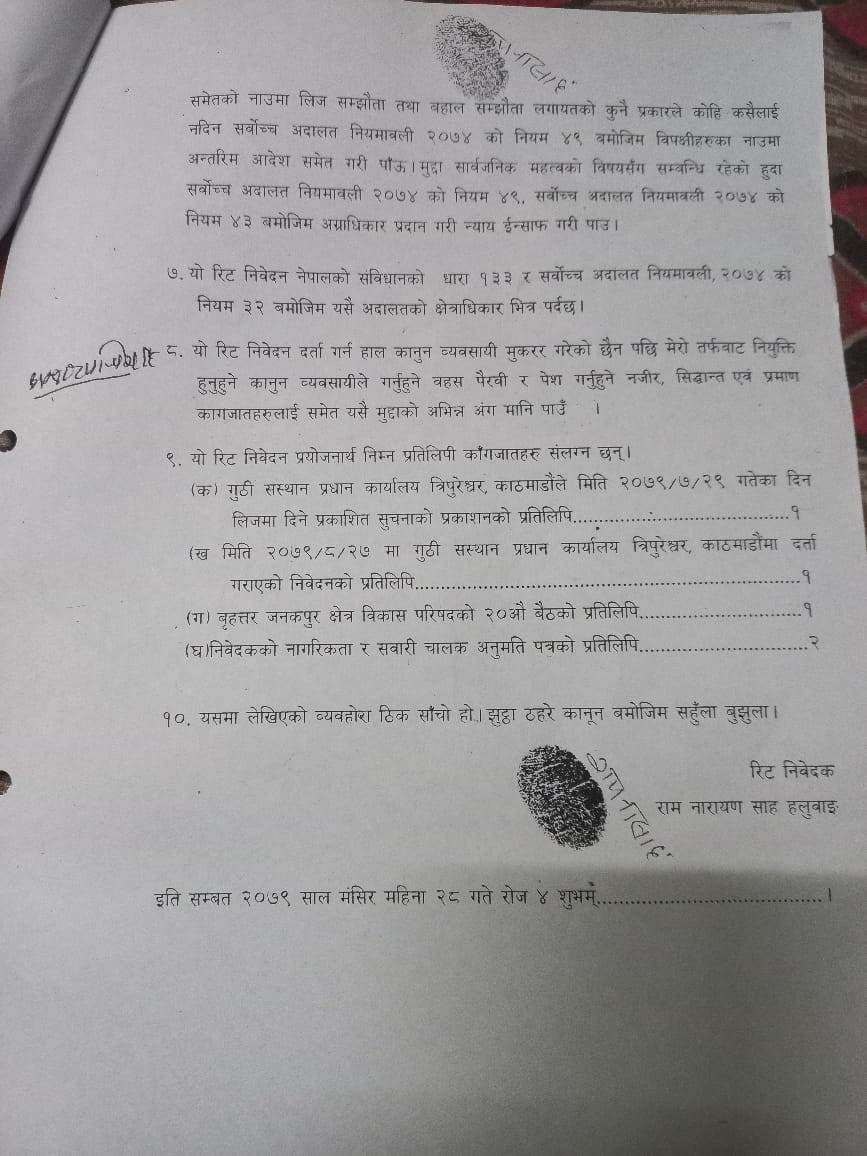 समेतको नाउमा लिज सम्झौता तथा बहाल सम्झौता लगायतको कुनै प्रकारले कोहि कसैलाई
नदिन सर्वोच्च अदालत नियमावली २०७४ को नियम ४९ बमोजिम विपक्षीहरुका नाउमा
अन्तरिम आदेश समेत गरी पाँऊ । मुद्दा सार्वजनिक महत्वको विषयसँग सम्वन्धि रहेको हुदा
सर्वोच्च अदालत नियमावली २०७४ को नियम ४९, सर्वोच्च अदालत नियमावली २०७४ को
नियम ४३ बमोजिम अग्राधिकार प्रदान गरी न्याय ईन्साफ गरी पाउ ।
७. यो रिट निवेदन नेपालको संविधानको धारा १३३ र सर्वोच्च अदालत नियमावली, २०७४ को
नियम ३२ बमोजिम यसै अदालतको क्षेत्राधिकार भित्र पर्दछ ।
८. यो रिट निवेदन दर्ता गर्न हाल कानुन व्यवसायी मुकरर गरेको छैन पछि मेरो तर्फबाट नियुक्ति
हुनुहुने कानुन व्यवसायीले गर्नुहुने वहस पैरवी र पेश गर्नुहुने नजीर, सिद्धान्त एवं प्रमाण
कागजातहरुलाई समेत यसै मुद्दाको अभिन्न अंग मानि पाउँ ।
९. यो रिट निवेदन प्रयोजनार्थ निम्न प्रतिलिपी काँगजातहरु संलग्न छन् ।
(क) गुठी सस्थान प्रधान कार्यालय त्रिपुरेश्वर, काठमाडौंले मिति २०७९/७/२९ गतेका दिन
लिजमा दिने प्रकाशित सुचनाको प्रकाशनको प्रतिलिपि.......................................१
(ख मिति २०७९/८/२७ मा गुठी सस्थान प्रधान कार्यालय त्रिपुरेश्वर, काठमाडौंमा दर्ता
गराएको निवेदनको प्रतिलिपि......................................................................१
(ग) बृहत्तर जनकपुर क्षेत्र विकास परिषदको २०औ बैठको प्रतिलिपि..............................१
(घ)निवेदकको नागरिकता र सवारी चालक अनुमति पत्रको प्रतिलिपि...............................२
१०. यसमा लेखिएको व्यवहोरा ठिक साँचो हो । झुठ्ठा ठहरे कानून बमोजिम सहुँला बुझुला ।
रिट निवेदक
राम नारायण साह हलुवाइ
इति सम्बत २०७९ साल मंसिर महिना २८ गते रोज ४ शुभम्........................................ ।